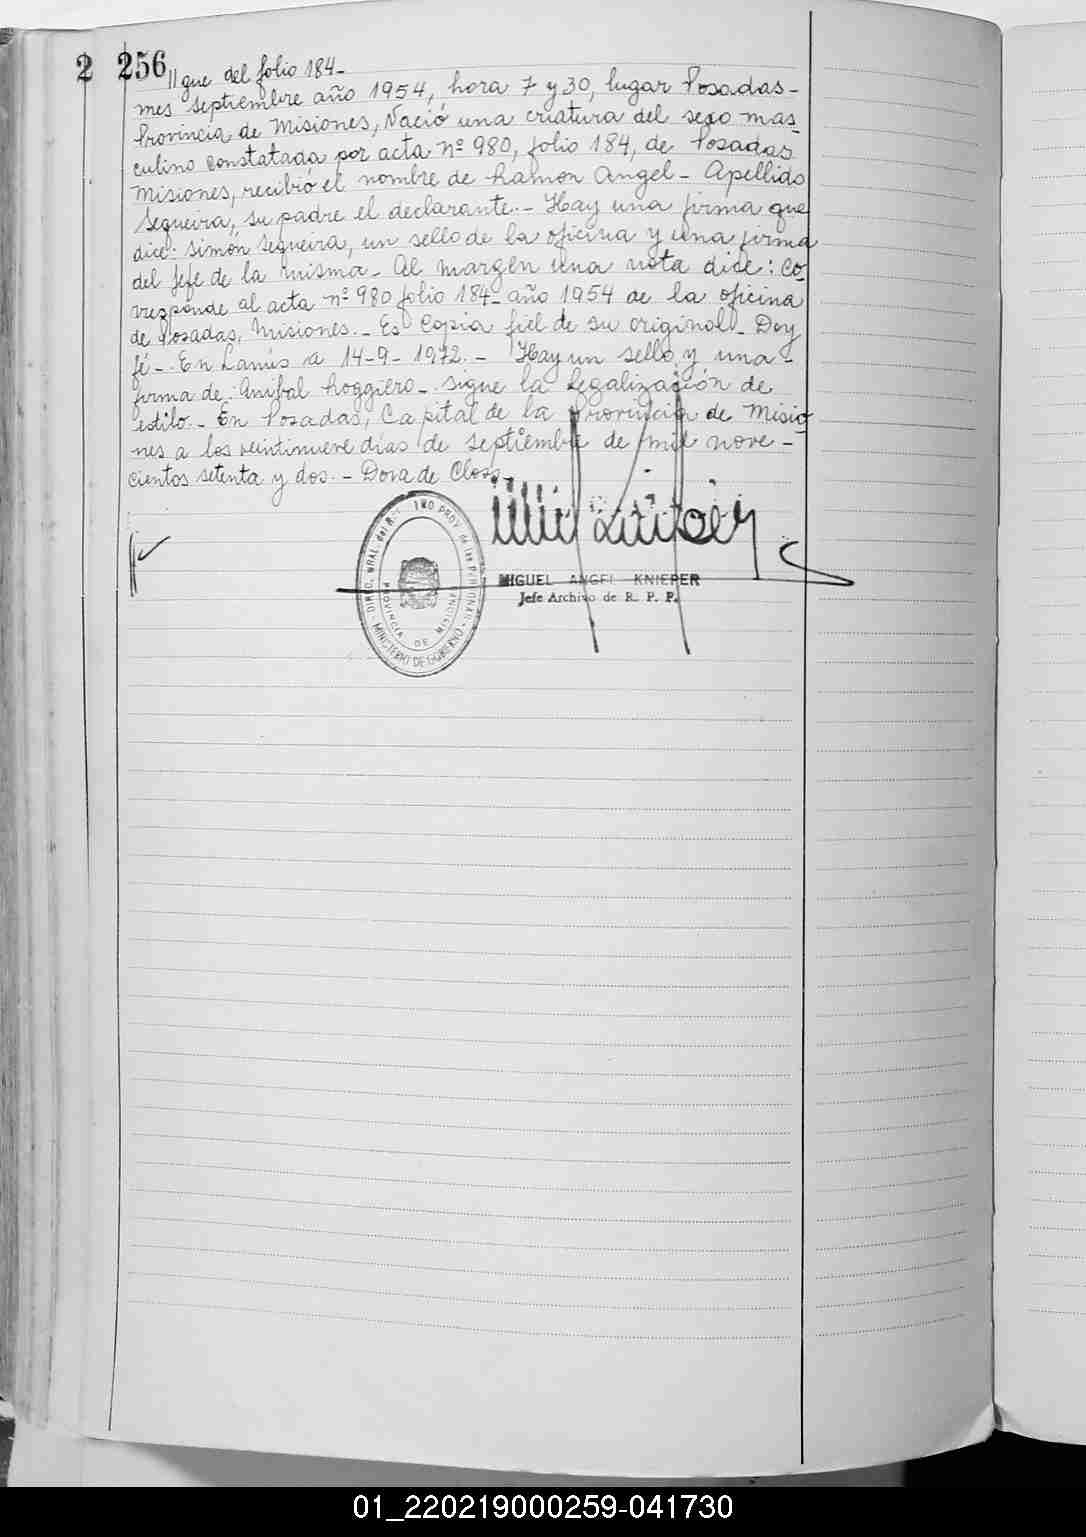 2 256
//gue del folio 184-
mes septiembre año 1954, hora 7 y 30, lugar Posadas-
Provincia de Misiones, Nació una criatura del sexo mas-
culino constatada por acta nº 980, folio 184, de Posadas
Misiones, recibió el nombre de Ramon Angel - Apellido
Sequeira, su padre el declarante.- Hay una firma que
dice: Simón Sequeira, un sello de la oficina y una firma
del Jefe de la misma - Al margen una nota dice: Co-
rresponde al acta nº 980 folio 184- año 1954 de la oficina
de Posadas, Misiones.- Es Copia fiel de su original - Doy
fé -. En Lanús a 14-9-1972.- Hay un sello y una -
firma de: Anibal Roggiero-. Sigue la Legalización de
estilo.- En Posadas, Capital de la Provincia de Misio-
nes a los veintinueve días de septiembre de mil nove-
cientos setenta y dos.- Dora de Closs-
DIREC. GRAL. del REGISTRO PROV. de las PERSONAS
PROVINCIA DE MISIONES
MINISTERIO DE GOBIERNO
MIGUEL ANGEL KNIEPER
Jefe Archivo de R. P. P.
01_220219000259-041730